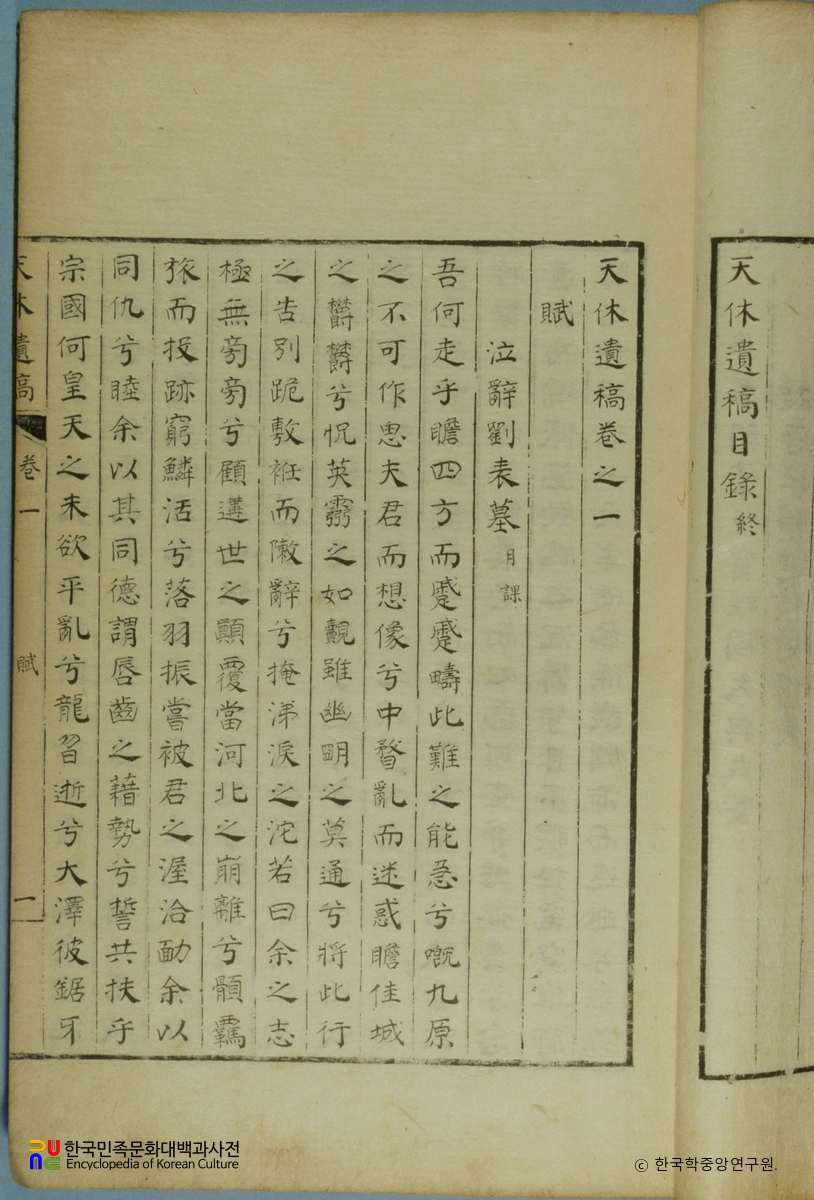 天休遺稿目錄終
天休遺稿卷之一
賦
泣辭劉表墓月課
吾何走乎瞻四方而蹙蹙疇此難之能急兮嘅九原
之不可作思夫君而想像兮中瞀亂而迷惑瞻佳城
之欝欝兮怳英霛之如覿雖幽明之莫通兮將此行
之告別跪敷袵而陳辭兮掩涕淚之沱若曰余之志
極無旁兮顧遘世之顚覆當河北之崩離兮顦羈
旅而投跡窮鱗活兮落羽振嘗被君之渥洽勔余以
同仇兮睦余以其同德謂唇齒之藉勢兮誓共扶乎
宗國何皇天之未欲平亂兮龍曶逝兮大澤彼鋸牙
天休遺稿 卷一 賦 一
한국민족문화대백과사전
Encyclopedia of Korean Culture
ⓒ 한국학중앙연구원.